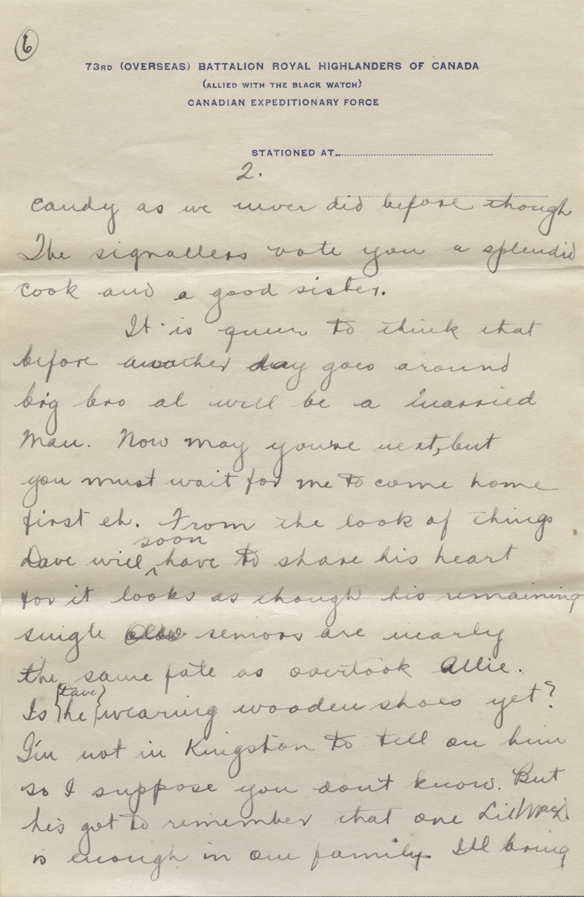 6
73RD (OVERSEAS) BATTALION ROYAL HIGHLANDERS OF CANADA
(ALLIED WITH THE BLACK WATCH)
CANADIAN EXPEDITIONARY FORCE
STATIONED AT
2.
candy as we never did before though
The signallers vote you a splendid
cook and a good sister.
It is queer to think that
before another day goes around
big bro al will be a married
man. Now may you're next, but
you must wait for me to come home
first eh. From the look of things
Dave will soon have to share his heart
for it looks as though his remaining
single seniors are nearly
the same fate as overtook Allie.
Is he (Dave) wearing wooden shoes yet?
I'm not in Kingston to tell on him
so I suppose you don't know. But
he's got to remember that one Lil
is enough in one family. I'll bring